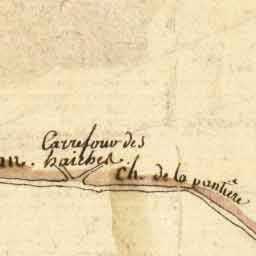 Carrefour des
haiches
ch. de la pantiere